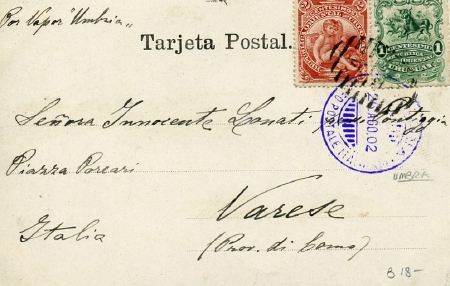 Por Vapor "Umbria"
Tarjeta Postal.
CENTESIMOS
CENTESIMO
1
URUGUAY
AGO.02
Señora Innocente Lonati
Piazza Porcari
UMBRIA
Varese
Italia
(Prov. di Como)
B 18-